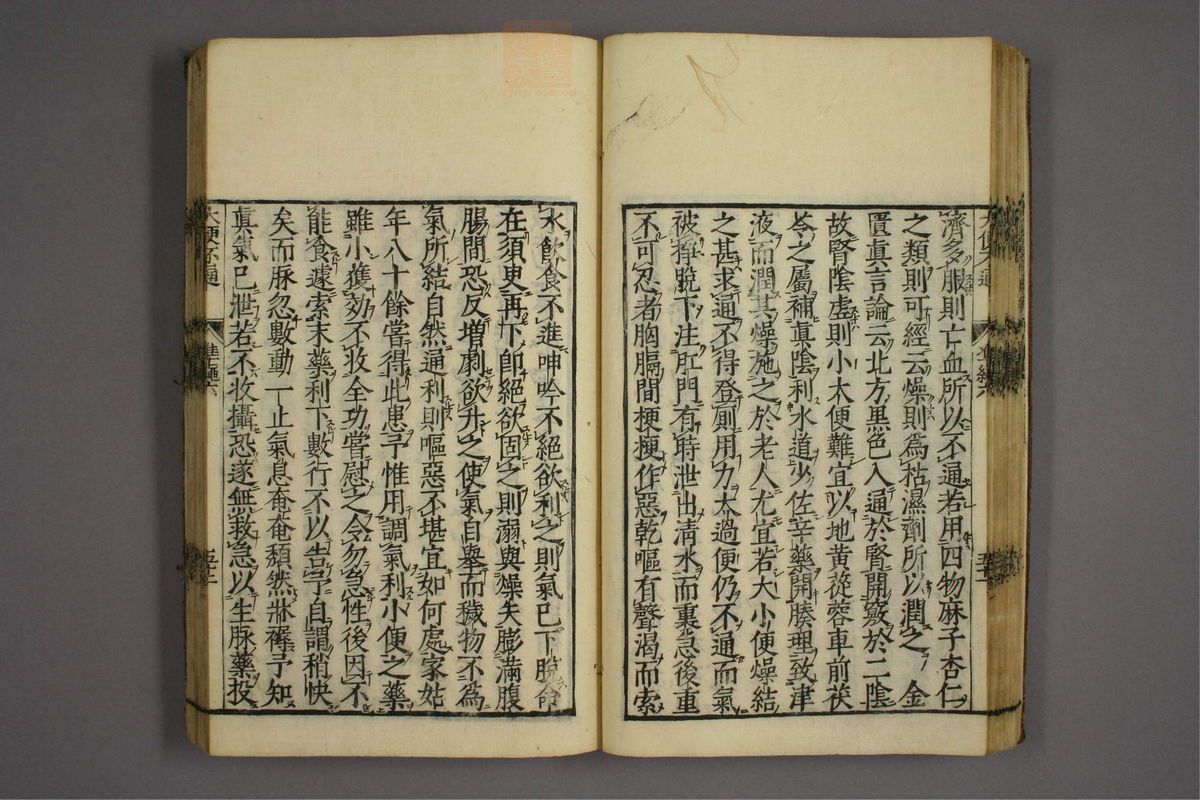 濟多服則亡血所以不通若用四物麻子杏仁
之類則可經云燥則爲枯濕劑所以潤之金
匱眞言論云北方黒色入通於腎開竅於二陰
故腎陰虛則小大便難宜以地黄蓯蓉車前茯
苓之屬補眞陰利水道少佐辛藥開腠理致津
液而潤其燥施之於老人尤宜若大小便燥結
之甚求通不得登厠用力太過便仍不通而氣
被掙脫下注肛門有時泄出清水而裏急後重
不可忍者胸膈間梗梗作惡乾嘔有聲渴而索
水飲食不進呻吟不絕欲利之則氣已下脫命
在須臾再下卽絕欲固之則溺與燥矢膨滿腹
腸間恐反增劇欲升之使氣自舉而穢物不爲
氣所結自然通利則嘔惡不堪宜如何處家姑
年八十餘嘗得此患予惟用調氣利小便之藥
雖小獲効不收全功嘗慰之令勿急性後因不
能食遽索末藥利下數行不以告予自謂稍快
矣而脉忽數動一止氣息奄奄頽然牀褥予知
眞氣已泄若不收攝恐遂無救急以生脉藥投
大便不通